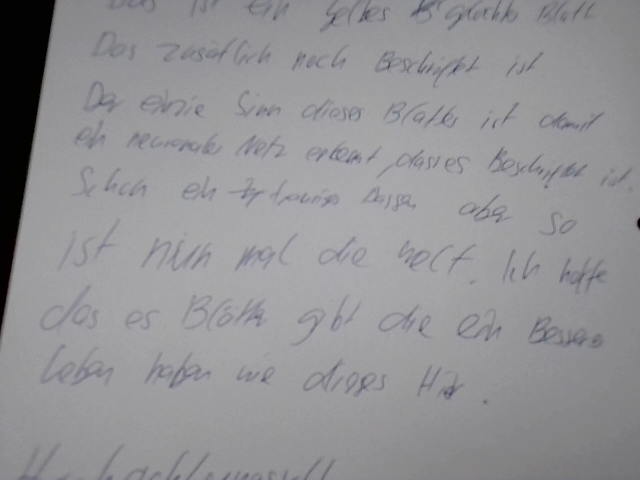 Das ist ein gelbes Blatt
Das zusätlich noch Beschriftet ist
Der einzie Sinn dieses Blattes ist damit
ein neuronales Netz erkennt, dass es Beschriftet ist.
Schon ein trauriges Dassen aber so
ist nun mal die welt. Ich hoffe
das es Blätter gibt die ein Besseres
leben haben wie dieses Hier.